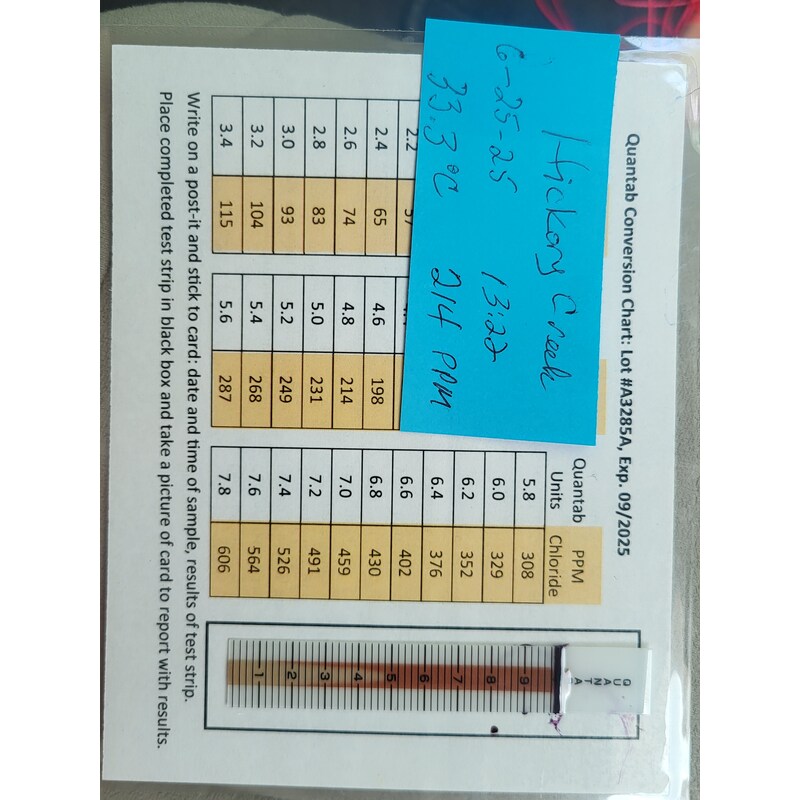 Quantab Conversion Chart: Lot #A3285A, Exp. 09/2025
Hickory Creek
6-25-25 13:22
33.3°C 214 PPM
Quantab Units PPM Chloride
2.2 57
2.4 65
2.6 74
2.8 83
3.0 93
3.2 104
3.4 115
4.6 198
4.8 214
5.0 231
5.2 249
5.4 268
5.6 287
5.8 308
6.0 329
6.2 352
6.4 376
6.6 402
6.8 430
7.0 459
7.2 491
7.4 526
7.6 564
7.8 606
QUANTA
9
8
7
6
5
4
3
2
1
Write on a post-it and stick to card: date and time of sample, results of test strip.
Place completed test strip in black box and take a picture of card to report with results.